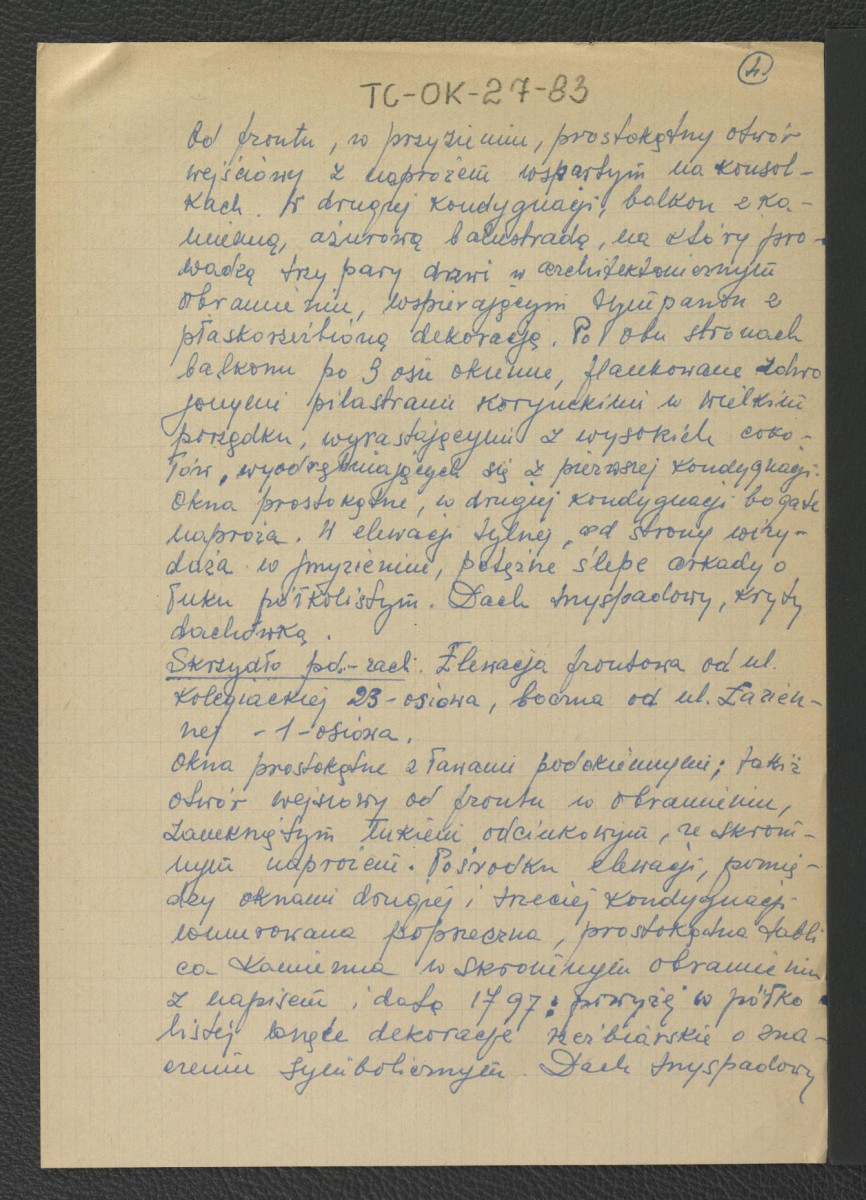 4
TC-OK-27-83
Od frontu, w przyziemiu, prostokątny otwór
wejściowy z naprożem wspartym na konsol-
kach. W drugiej kondygnacji, balkon z ka-
mienną, ażurową balustradą, na który pro-
wadzą trzy pary drzwi w architektonicznym
obramieniu, wspierającym tympanon z
płaskorzeźbioną dekoracją. Po obu stronach
balkonu po 3 osie okienne, flankowane zdwo
jonymi pilastrami korynckimi w wielkim
porządku, wyrastającymi z wysokich coko-
łów, wyodrębniających się z pierwszej kondygnacji.
Okna prostokątne, w drugiej kondygnacji bogate
naproża. W elewacji tylnej, od strony wiry-
daża w przyziemiu, potężne ślepe arkady o
łuku półkolistym. Dach trzyspadowy, kryty
dachówką.
Skrzydło pd.-zach. Elewacja frontowa od ul.
Kolegiackiej 23-osiowa, boczna od ul. Łazien-
nej - 1-osiowa.
Okna prostokątne z ławami podokiennymi; takiż
otwór wejściowy od frontu w obramieniu,
zamkniętym łukiem odcinkowym, ze skrom-
nym naprożem. Pośrodku elewacji, pomię-
dzy oknami drugiej i trzeciej kondygnacji
wmurowana poprzeczna, prostokątna tabli
ca kamienna w skromnym obramieniu
z napisem i datą 1797; powyżej w półko
listej wnęce dekoracje rzeźbiarskie o zna-
czeniu symbolicznym. Dach trzyspadowy